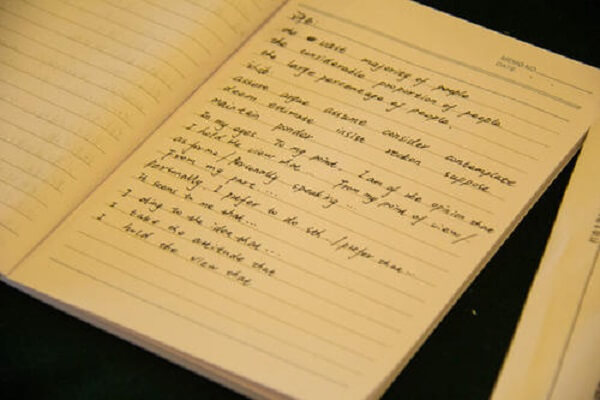 MEMO NO.
DATE
the vast majority of people
the considerable proportion of people
the large percentage of people.
assure argue assume consider contemplate
deem estimate insist reckon suppose
Maintain ponder
In my eyes. To my point... I am of the opinion that
I hold the view that... From my point of view/
as for me / Personally speaking ...
From my part ....
Personally, I prefer to do sth. / prefer that...
It seems to me that...
I cling to the idea that...
I take the attitude that
I hold the view that